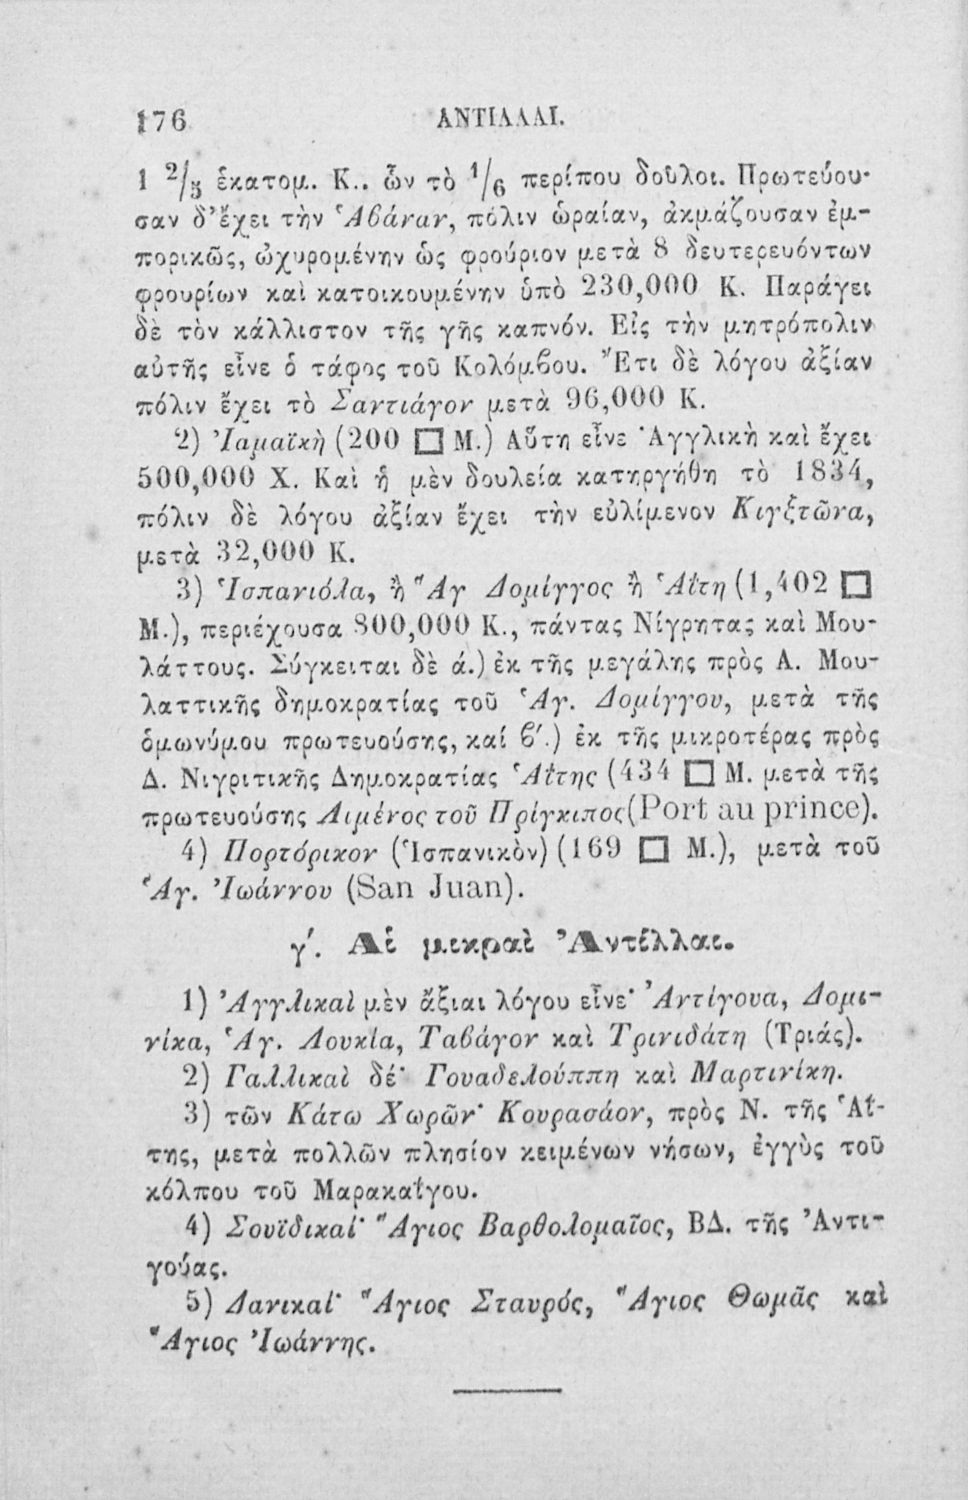 176 ΑΝΤΙΛΛΑΙ.
1 2/5 ἑκατομ. Κ.. ὧν τὸ 1/6 περίπου δοῦλοι. Πρωτεύου-
σαν δ’ ἔχει τὴν Ἀβάναν, πόλιν ὡραίαν, ἀκμάζουσαν ἐμ-
πορικῶς, ὠχυρομένην ὡς φρούριον μετὰ 8 δευτερευόντων
φρουρίων καὶ κατοικουμένην ὑπὸ 230,000 Κ. Παράγει
δὲ τὸν κάλλιστον τῆς γῆς καπνόν. Εἰς τὴν μητρόπολιν
αὐτῆς εἶνε ὁ τάφος τοῦ Κολόμβου. Ἔτι δὲ λόγου ἀξίαν
πόλιν ἔχει τὸ Σαντιάγον μετὰ 96,000 Κ.
2) Ἰαμαϊκὴ (200 □ Μ.) Αὕτη εἶνε Ἀγγλικὴ καὶ ἔχει
500,000 Χ. Καὶ ἡ μὲν δουλεία κατηργήθη τὸ 1834,
πόλιν δὲ λόγου ἀξίαν ἔχει τὴν εὐλίμενον Κιγξτῶνα,
μετὰ 32,000 Κ.
3) Ἱσπανιόλα, ἢ Ἅγ Δομίγγος ἢ Ἁΐτη (1,402 □
Μ.), περιέχουσα 800,000 Κ., πάντας Νίγρητας καὶ Μου-
λάττους. Σύγκειται δὲ ά.) ἐκ τῆς μεγάλης πρὸς Α. Μου-
λαττικῆς δημοκρατίας τοῦ Ἁγ. Δομίγγου, μετὰ τῆς
ὁμωνύμου πρωτευούσης, καί β΄.) ἐκ τῆς μικροτέρας πρὸς
Δ. Νιγριτικῆς Δημοκρατίας Ἁΐτης (434 □ Μ. μετὰ τῆς
πρωτευούσης Λιμένος τοῦ Πρίγκιπος (Port au prince).
4) Πορτόρικον (Ἱσπανικὸν) (169 □ Μ.), μετὰ τοῦ
Ἁγ. Ἰωάννου (San Juan).
γ΄. Αἱ μικραὶ Ἀντίλλαι.
1) Ἀγγλικαὶ μὲν ἄξιαι λόγου εἶνε· Ἀντίγουα, Δομι-
νίκα, Ἁγ. Λουκία, Ταβάγον καὶ Τρινιδάτη (Τριάς).
2) Γαλλικαὶ δέ· Γουαδελούππη καὶ Μαρτινίκη.
3) τῶν Κάτω Χωρῶν· Κουρασάον, πρὸς Ν. τῆς Ἁΐ-
της, μετὰ πολλῶν πλησίον κειμένων νήσων, ἐγγὺς τοῦ
κόλπου τοῦ Μαρακαΐγου.
4) Σουϊδικαί· Ἅγιος Βαρθολομαῖος, ΒΔ. τῆς Ἀντι-
γούας.
5) Δανικαί· Ἅγιος Σταυρός, Ἅγιος Θωμᾶς καὶ
Ἅγιος Ἰωάννης.